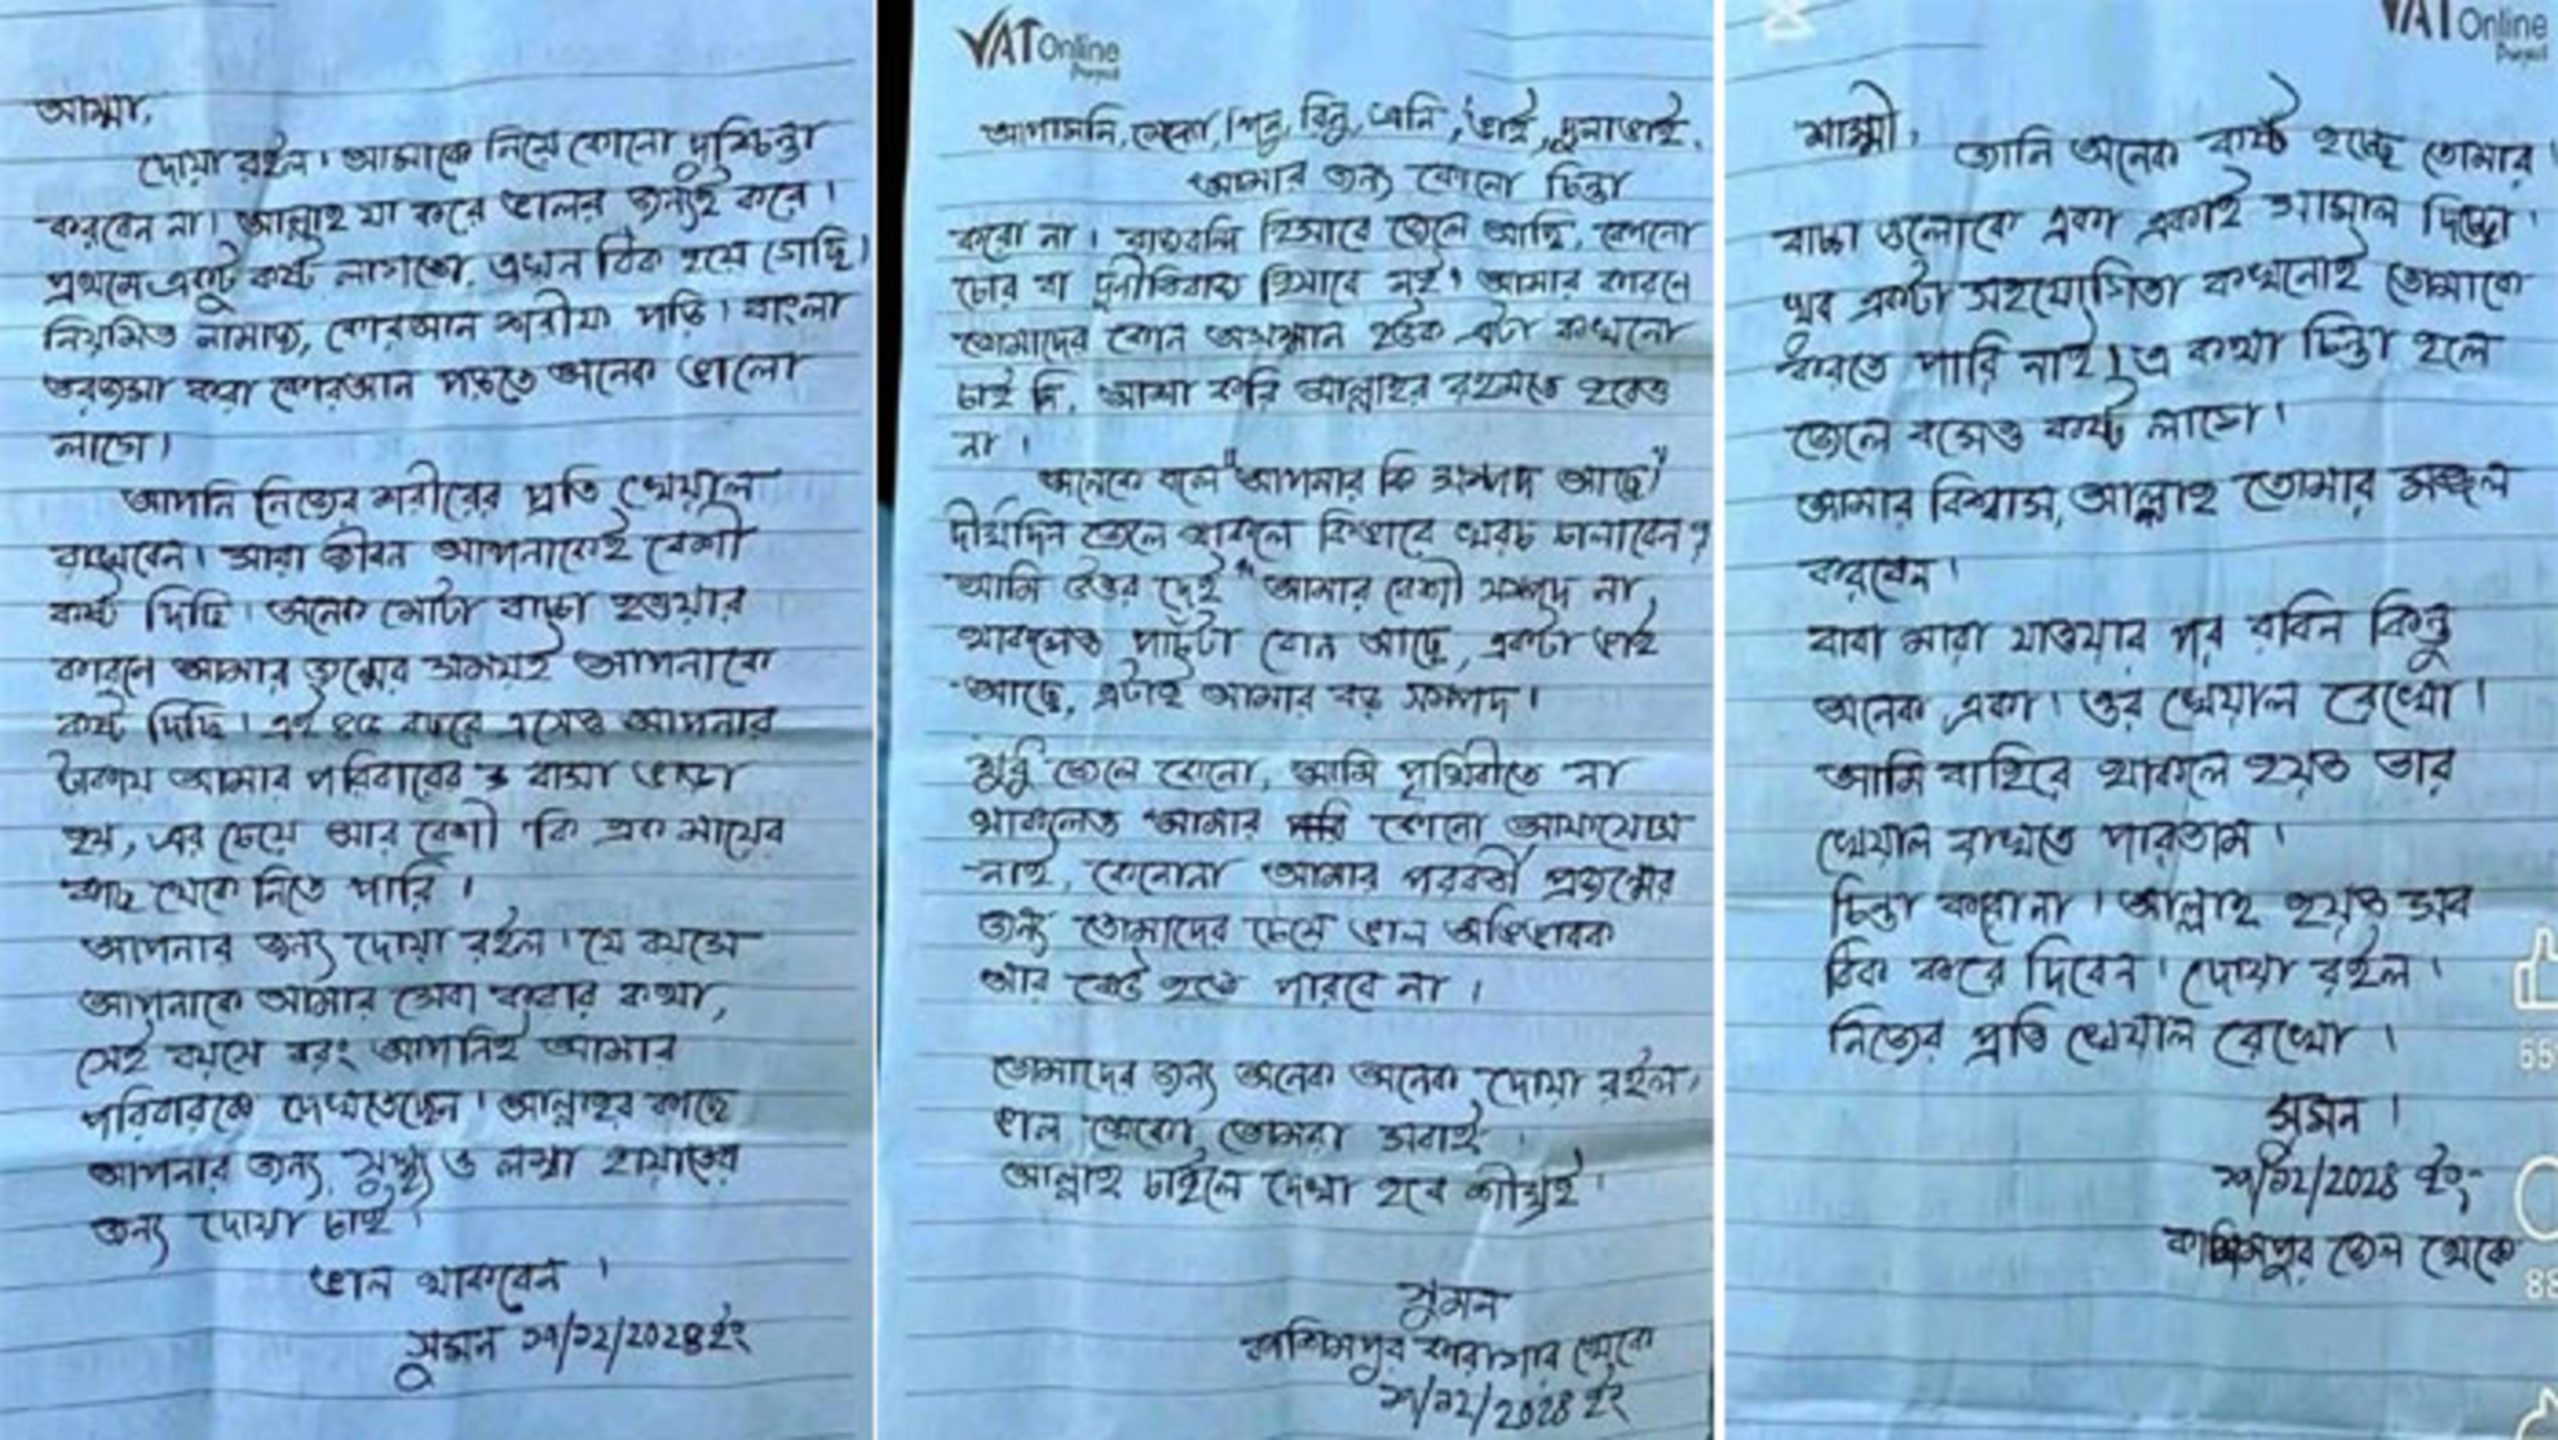 আম্মা,
দোয়া রইল। আমাকে নিয়ে কোনো দুশ্চিন্তা
করবেন না। আল্লাহ যা করে ভালর জন্যই করে।
প্রথমে একটু কষ্ট লাগতো, এখন ঠিক হয়ে গেছি।
নিয়মিত নামাজ, কোরআন শরীফ পড়ি। বাংলা
তরজমা করা কোরআন পড়তে অনেক ভালো
লাগে।
আপনি নিজের শরীরের প্রতি খেয়াল
রাখবেন। সারা জীবন আপনাকেই বেশী
কষ্ট দিছি। অনেক মোটা বাচ্চা হওয়ার
কারনে আমার জন্মের সময়ই আপনাকে
কষ্ট দিছি। এই বছরে এসেও আপনার
টাকায় আমার পরিবারের ও বাসা ভাড়া
হয়, এর চেয়ে আর বেশী কি এক মায়ের
কাছ থেকে নিতে পারি।
আপনার জন্য দোয়া রইল। যে বয়সে
আপনাকে আমার সেবা করবার কথা,
সেই বয়সে বরং আপনিই আমার
পরিবারকে দেখতেছেন। আল্লাহর কাছে
আপনার জন্য সুস্থ্য ও লম্বা হায়াতের
জন্য দোয়া চাই।
ভাল থাকবেন।
সুমন ২৭/১২/২০২৪ ইং
VAT Online
Project
আপামনি, মেঝো, শিলু, রিনু, এনি, ভাই, দুলাভাই,
আমার জন্য কোনো চিন্তা
করো না। রাজবন্দি হিসাবে জেলে আছি, কোনো
চোর বা দুর্নীতিবাজ হিসাবে নই। আমার কারনে
তোমাদের কোন অসম্মান হউক এটা কখনো
চাই নি, আশা করি আল্লাহর রহমতে হবেও
না।
অনেকে বলে "আপনার কি সম্পদ আছে?
দীর্ঘদিন জেলে থাকলে কিভাবে খরচ চালাবেন?
আমি উত্তর দেই "আমার বেশী সম্পদ না,
থাকলেও পাচঁটা বোন আছে, একটা ভাই
আছে, এটাই আমার বড় সম্পদ।
শুধু জেলে কেনো, আমি পৃথিবীতে না
থাকলেও আমার কোনো আফসোস
নাই, কেনোনা আমার পরবর্তী প্রজন্মের
জন্য তোমাদের চেয়ে ভাল অভিভাবক
আর কেউ হতে পারবে না।
তোমাদের জন্য অনেক অনেক দোয়া রইল।
ভাল থেকো তোমরা সবাই।
আল্লাহ চাইলে দেখা হবে শীঘ্রই।
সুমন
কাশিমপুর কারাগার থেকে
২৭/১২/২০২৪ ইং
VAT Online
Project
শাম্মী,
জানি অনেক কষ্ট হচ্ছে তোমার।
বাচ্চা গুলোকে একা একাই সামাল দিচ্ছো।
খুব একটা সহযোগিতা কখনোই তোমাকে
করতে পারি নাই। এ কথা চিন্তা হলে
জেলে বসেও কষ্ট লাগে।
আমার বিশ্বাস, আল্লাহ তোমার মঙ্গল
করবেন।
বাবা মারা যাওয়ার পর রবিন কিন্তু
অনেক একা। ওর খেয়াল রেখো।
আমি বাহিরে থাকলে হয়ত তার
খেয়াল রাখতে পারতাম।
চিন্তা করোনা। আল্লাহ হয়ত সব
ঠিক করে দিবেন। দোয়া রইল।
নিজের প্রতি খেয়াল রেখো।
সুমন।
২৭/১২/২০২৪ ইং
কাশিমপুর জেল থেকে